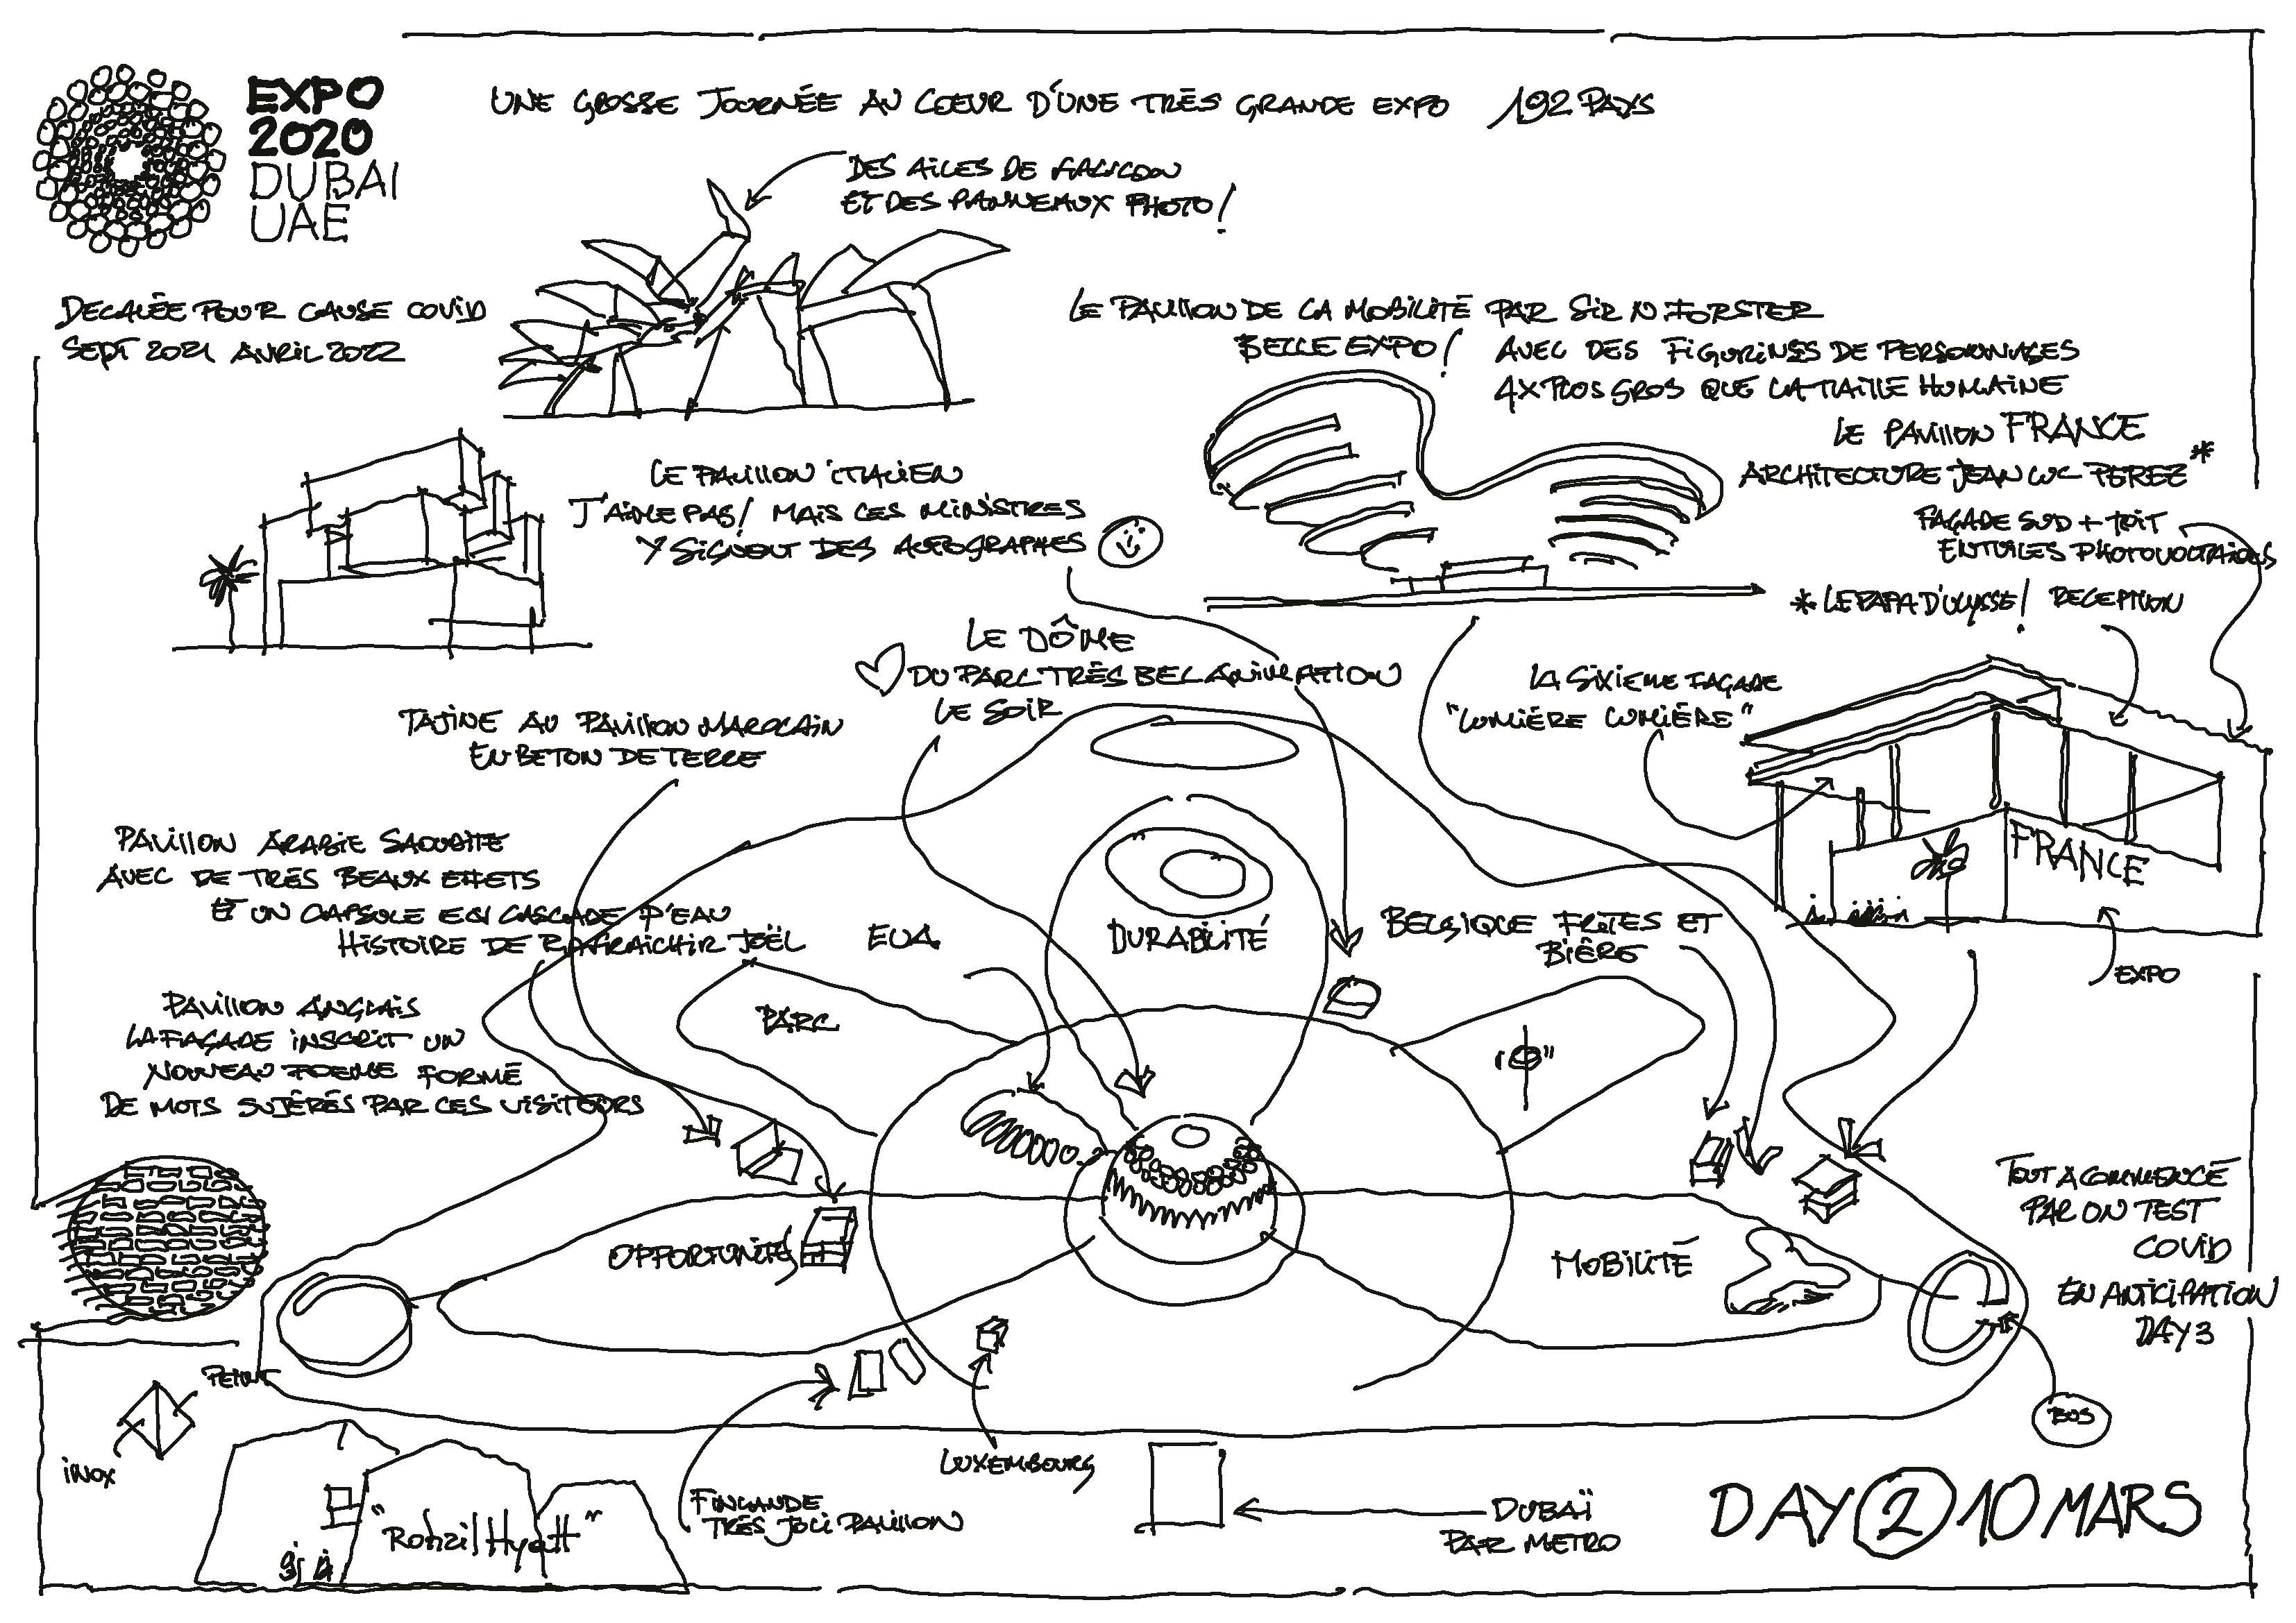 EXPO
2020
DUBAI
UAE
UNE GROSSE JOURNÉE AU COEUR D'UNE TRÈS GRANDE EXPO 192 PAYS
DES AILES DE
ET DES PANNEAUX PHOTO!
DECALÉE POUR CAUSE COVID
SEPT 2021 AVRIL 2022
LE PAVILLON DE LA MOBILITÉ PAR SIR N FORSTER
BELLE EXPO! AVEC DES FIGURINES DE PERSONNAGES
4X PLUS GROS QUE LA TAILLE HUMAINE
LE PAVILLON FRANCE
ARCHITECTURE JEAN LUC PEREZ *
FAÇADE SUD + TOIT
EN TUILES PHOTOVOLTAIQUES
* LE PAPA D'ULYSSE! RECEPTION
LE PAVILLON ITALIEN
J'AIME PAS! MAIS LES MINISTRES
Y SIGNENT DES AUTOGRAPHES
LE DÔME
DU PARC TRÈS BEL ANIMATION
LE SOIR
LA SIXIEME FAÇADE
"LUMIÈRE LUMIÈRE"
TAJINE AU PAVILLON MAROCAIN
EN BETON DE TERRE
PAVILLON ARABIE SAOUDITE
AVEC DE TRÈS BEAUX EFFETS
ET UN CAPSULE EN CASCADE D'EAU
HISTOIRE DE RAFRAICHIR JOËL
EUA
DURABILITÉ
BELGIQUE FRITES ET
BIÈRE
FRANCE
EXPO
PAVILLON ANGLAIS
LA FAÇADE INSCRIT UN
NOUVEAU POEME FORMÉ
DE MOTS SUJÉRÉS PAR LES VISITEURS
PARC
OPPORTUNITÉ
MOBILITÉ
TOUT A COMMENCÉ
PAR UN TEST
COVID
EN ANTICIPATION
DAY 3
PEINT
INOX
BUS
LUXEMBOURG
FINLANDE
TRÈS JOLI PAVILLON
DUBAÏ
PAR METRO
DAY 2 10 MARS